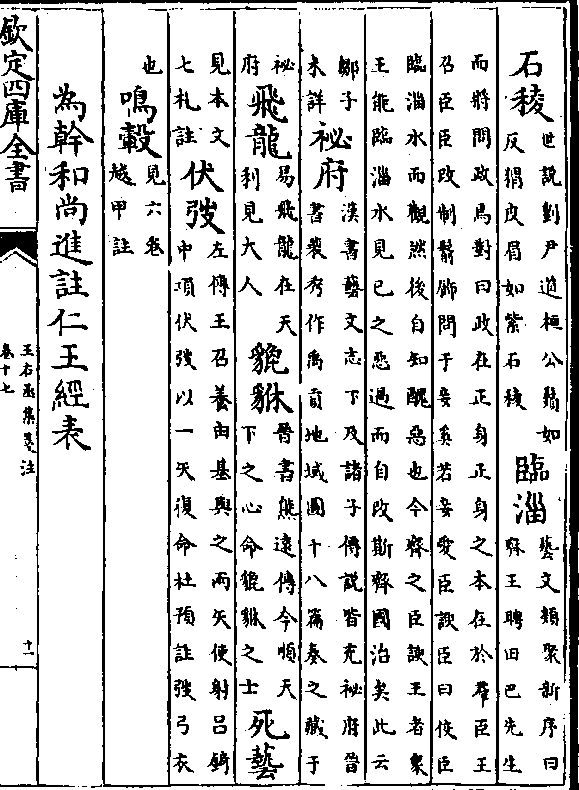 石稜
世說劉尹道桓公鬚如
反猬皮眉如紫石稜
臨淄
藝文類聚新序曰
齊王聘田巴先生
而將問政焉對曰政在正身正身之本在於羣臣王
召臣臣改制鬋飾問于妾奚若妾愛臣諛臣曰佼臣
臨淄水而觀然後自知醜惡也今齊之臣諛王者衆
王能臨淄水見己之惡過而自改斯齊國治矣此云
鄒子
未詳
祕府
漢書藝文志下及諸子傳說皆充祕府晉
書裴秀作禹貢地域圖十八篇奏之藏于
祕
府
飛龍
易飛龍在天
利見大人
貔貅
晉書熊遠傳今順天
下之心命貔貅之士
死藝
見本文
七札註
伏弢
左傳王召養由基與之兩矢使射呂錡
中項伏弢以一矢復命杜預註弢弓衣
也
鳴轂
見六卷
越甲註
為幹和尚進註仁王經表
欽定四庫全書
王右丞集箋注
卷十七
十一